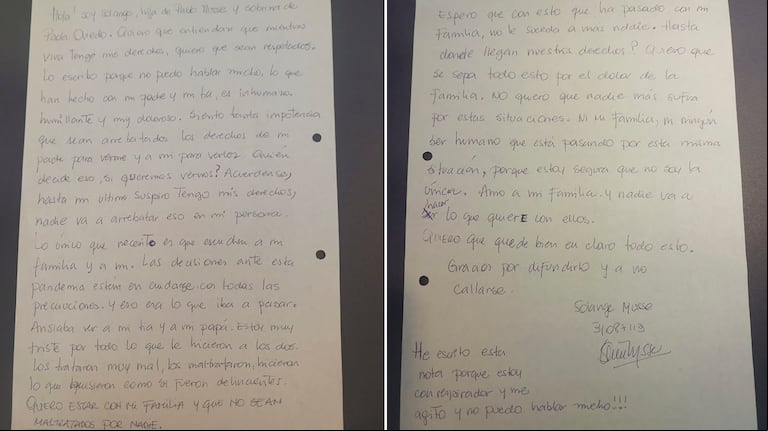 Hola! soy Solange, hija de Pablo Musse y sobrina de
Paola Oviedo. Quiero que entiendan que mientras
viva tengo mis derechos, quiero que sean respetados.
Lo escribo porque no puedo hablar mucho, lo que
han hecho con mi padre y mi tía, es inhumano.
humillante y muy doloroso. Siento tanta impotencia
que sean arrebatados los derechos de mi
padre para verme y a mi para verlos. Quién
decide eso, si queremos vernos? Acuerdense,
hasta mi último suspiro tengo mis derechos,
nadie va a arrebatar eso en mi persona.
Lo único que necesito es que escuchen a mi
familia y a mi. Las decisiones ante esta
pandemia están en cuidarse con todas las
precauciones. y eso era lo que iba a pasar.
Ansiaba ver a mi tia y a mi papá. Estoy muy
triste por todo lo que le hicieron a los dos.
Los trataron muy mal, los maltrataron, hicieron
lo que quisieron como si fueron delincuentes.
QUIERO ESTAR CON MI FAMILIA Y QUE NO SEAN
MALTRATADOS POR NADIE.
Espero que con esto que ha pasado con mi
familia, no le suceda a mas nadie. Hasta
donde llegan nuestros derechos? Quiero que
se sepa todo esto por el dolor de la
familia. NO quiero que nadie más sufra
por estas situaciones. Ni mi familia, ni ningún
ser humano que está pasando por esta misma
situación, porque estoy segura que no soy la
única. Amo a mi familia. y nadie va a
hacer lo que quierE con ellos.
QUIERO que quede bien en claro todo esto.
Gracias por difundirlo y a no
callarse.
Solange Musse
He escrito esta
nota porque estoy
con respirador y me
agito y no puedo hablar mucho!!!